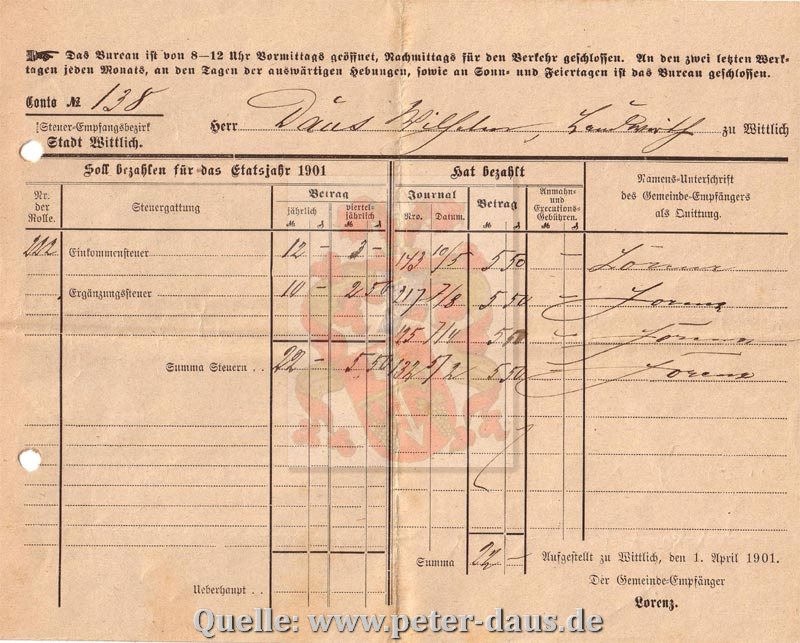 Das Bureau ist von 8—12 Uhr Vormittags geöffnet, Nachmittags für den Verkehr geschlossen. An den zwei letzten Werk-
tagen jeden Monats, an den Tagen der auswärtigen Hebungen, sowie an Sonn- und Feiertagen ist das Bureau geschlossen.
Conto № 138
Herr Daus Wilhelm, Landwirth zu Wittlich
Steuer-Empfangsbezirk
Stadt Wittlich.
Soll bezahlen für das Etatsjahr 1901
Hat bezahlt
Nr. der Rolle.
Steuergattung
Betrag
jährlich
viertel-jährlich
Journal
Nro. Datum.
Betrag
Anmahn- und Executions-Gebühren.
Namens-Unterschrift
des Gemeinde-Empfängers
als Quittung.
222 Einkommensteuer 12 – 3 – 143 10/5 5 50 – Lorenz
Ergänzungssteuer 10 – 2 50 217 7/8 5 50 – Lorenz
5 50 – Lorenz
Summa Steuern . . 22 – 5 50 132 5/2 5 50 – Lorenz
Summa 22 –
Aufgestellt zu Wittlich, den 1. April 1901.
Der Gemeinde-Empfänger
Ueberhaupt . .
Lorenz.
Quelle: www.peter-daus.de